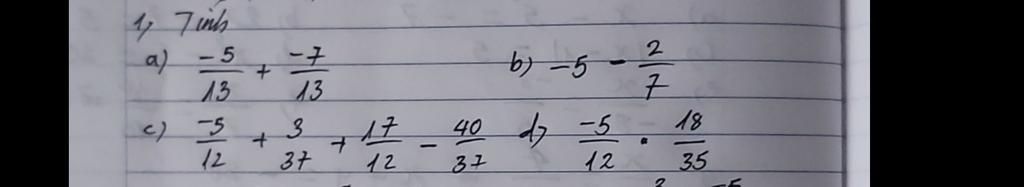 1, Tính
a) -5/13 + -7/13 b) -5 - 2/7
c) -5/12 + 3/37 + 17/12 - 40/37 d) -5/12 . 18/35